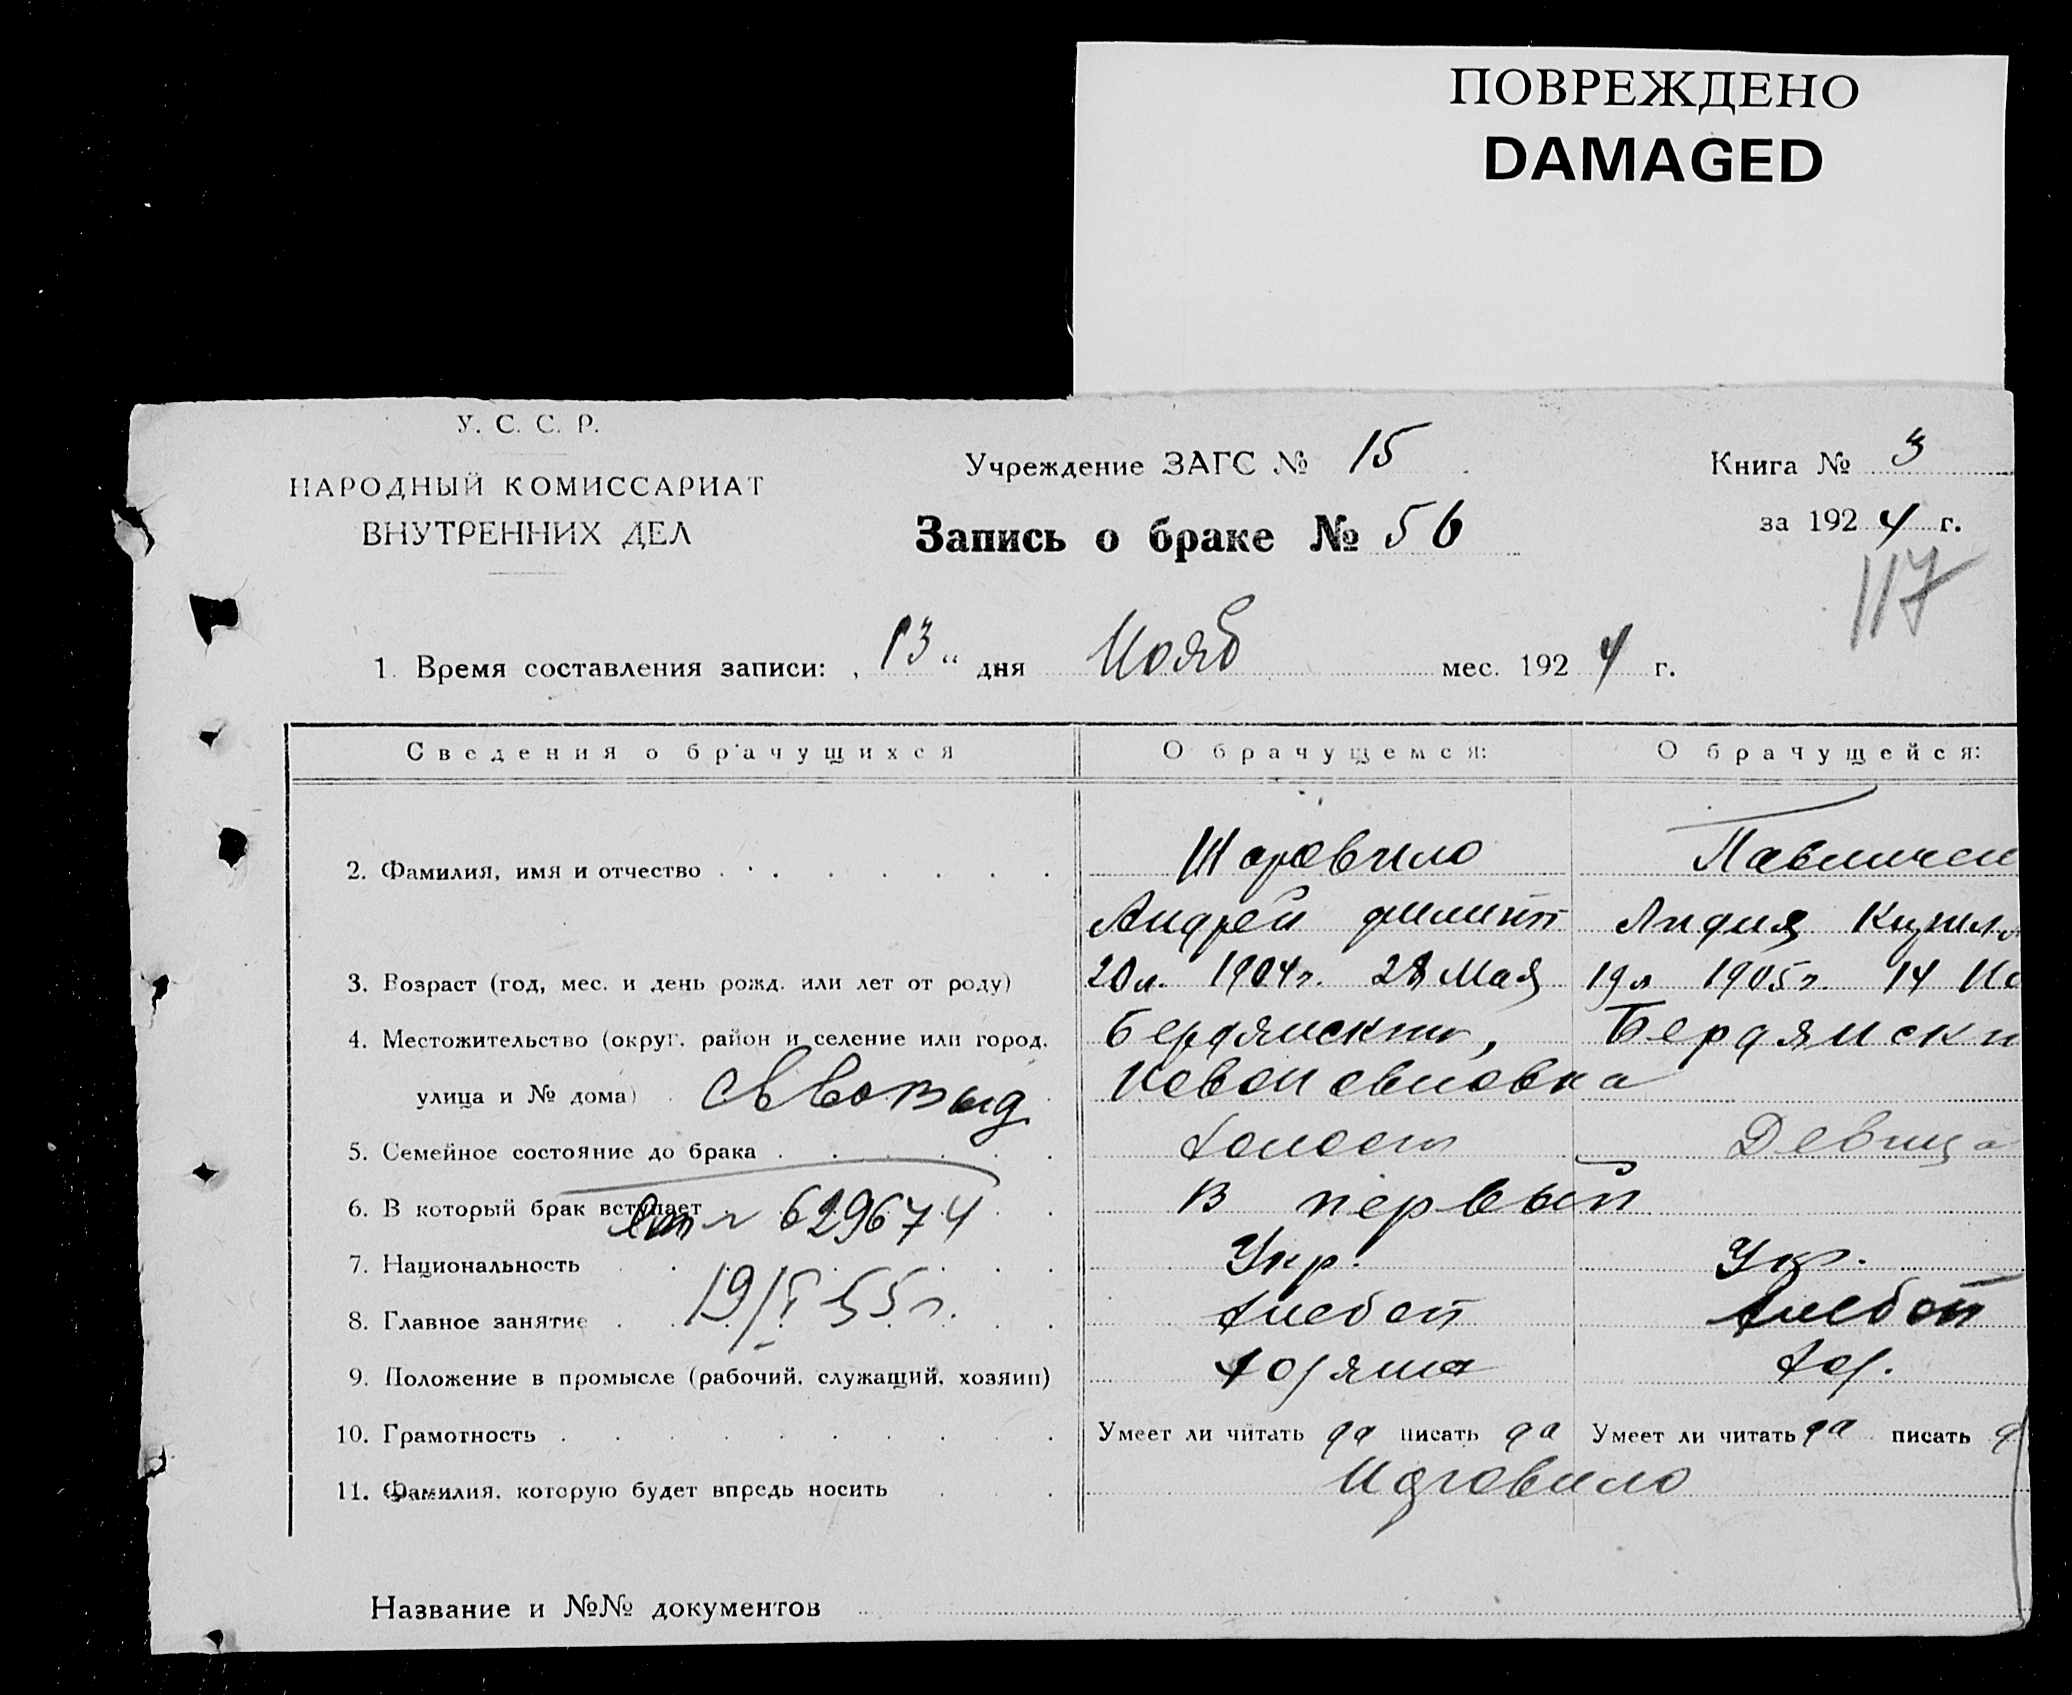 ПОВРЕЖДЕНО
DAMAGED
У. С. С. Р.
НАРОДНЫЙ КОМИССАРИАТ
ВНУТРЕННИХ ДЕЛ
Учреждение ЗАГС № 15
Запись о браке № 56
Книга № 3
за 1924 г.
117
1. Время составления записи: „13“ дня Нояб мес. 1924 г.
Сведения о брачущихся О брачущемся: О брачущейся:
2. Фамилия, имя и отчество Шаровило Павличен
Андрей Филипп Лидия Кирилл
3. Возраст (год, мес. и день рожд. или лет от роду) 20 л. 1904 г. 28 Мая 19 л 1905 г. 14
4. Местожительство (округ, район и селение или город, Бердянский, Бердянски
улица и № дома) Новопавловка
5. Семейное состояние до брака Холост Девица
6. В который брак вступает В первый
№ 629674
7. Национальность Укр. Укр.
19/V 55 г.
8. Главное занятие Хлебоп Хлебоп
9. Положение в промысле (рабочий, служащий, хозяин) Хозяина Хоз.
10. Грамотность Умеет ли читать да писать да Умеет ли читать да писать д
11. Фамилия, которую будет впредь носить
Название и №№ документов